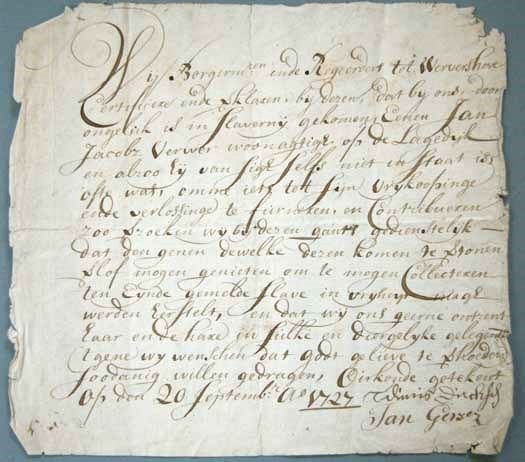 Wij Borgerm:ren ende Regeerders tot Wervershove
Certificere ende Klaren, bij dezen, dat bij ons, door
ongelick is in Slavernij gekomen, Eenen Jan
Jacobz Verwer woonaktigh op de Lagedijk
en alzoo hij van sigh selfs niet in staat is
ofte wat, omme iets tot sijn vrijkoopinge
ende verlossinge te furneren, en Contribueren
zoo versoeken wy by dezen gants gedienstelik
dat den genen dewelke dezen komen te thonen
mogen genieten om te mogen Collecteren
ten Eynde gemelde Slave in vryheyt magh
werden herstelt, en dat wij ons geerne omtrent
haar ende hare in sulke en diergelyke gelegent
tgene wy wenschen dat godt gelieve te
soodanig willen gedragen, Oirkonde getekent
Op den 20 September Ao 1727
Jan